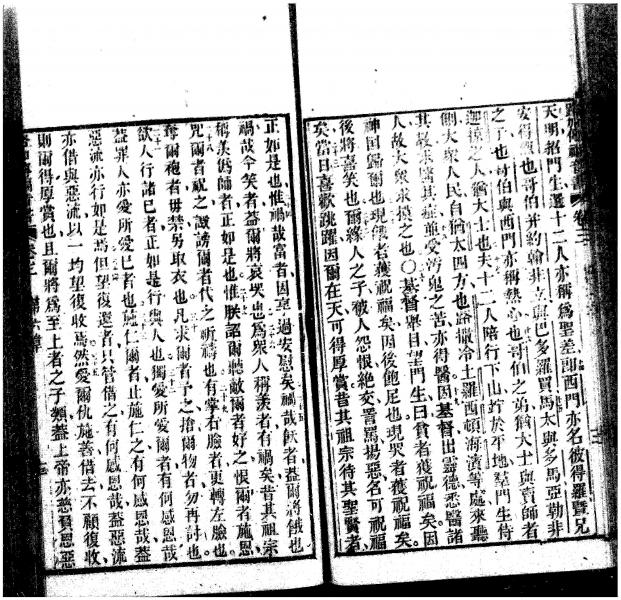 天明招門生選十二人亦稱爲聖差即西門亦名彼得羅暨兄
安得烈也哥伯并約翰非立與巴多羅買馬太與多馬亞勒非
之子也哥伯與西門亦稱熱心也哥伯之弟猶大士與賣師者
迦掠之人猶大士也夫十二人陪行下山竚於平地羣門生侍
側大衆人民自猶太四方也路撒冷土羅西頓海濱等處來聽
其敎求醫其症並受汚鬼之苦亦得醫因基督出靈德悉醫諸
人故大衆求摸之也〇基督舉目望門生曰貧者獲祝福矣因
神国歸爾也現餓者獲祝福矣因後飽足也現哭者獲祝福矣
後將嘉笑也爾緣人之子被人怨恨絶交詈罵揚惡名可祝福
矣當日喜歡跳躍因爾在天可得厚賞昔其祖宗待其聖賢者
正如是也惟禍哉富者因享過安慰矣禍哉飫者蓋爾將餓也
禍哉今笑者蓋爾將哀哭也爲衆人稱羨者有禍矣昔其祖宗
稱羨僞師者正如是也惟朕詔爾聽敵爾者好之恨爾者施恩
咒爾者祝之譭謗爾者代之祈禱也有掌右臉者更轉左臉也
奪爾袍者毋禁另取衣也凡求爾者予之搶爾物者勿再討也
欲人行諸已者正如是行與人也獨愛所愛爾者有何感恩哉
蓋罪人亦愛所愛已者也施仁爾者止施仁之有何感恩哉蓋
惡流亦行如是焉但望復還者只管借之有何感恩哉蓋惡流
亦借與惡流以一均望復收焉然愛爾仇施善借去不顧復收
則爾得厚賞也且爾將爲至上者之子類蓋上帝亦慈賢恩惡